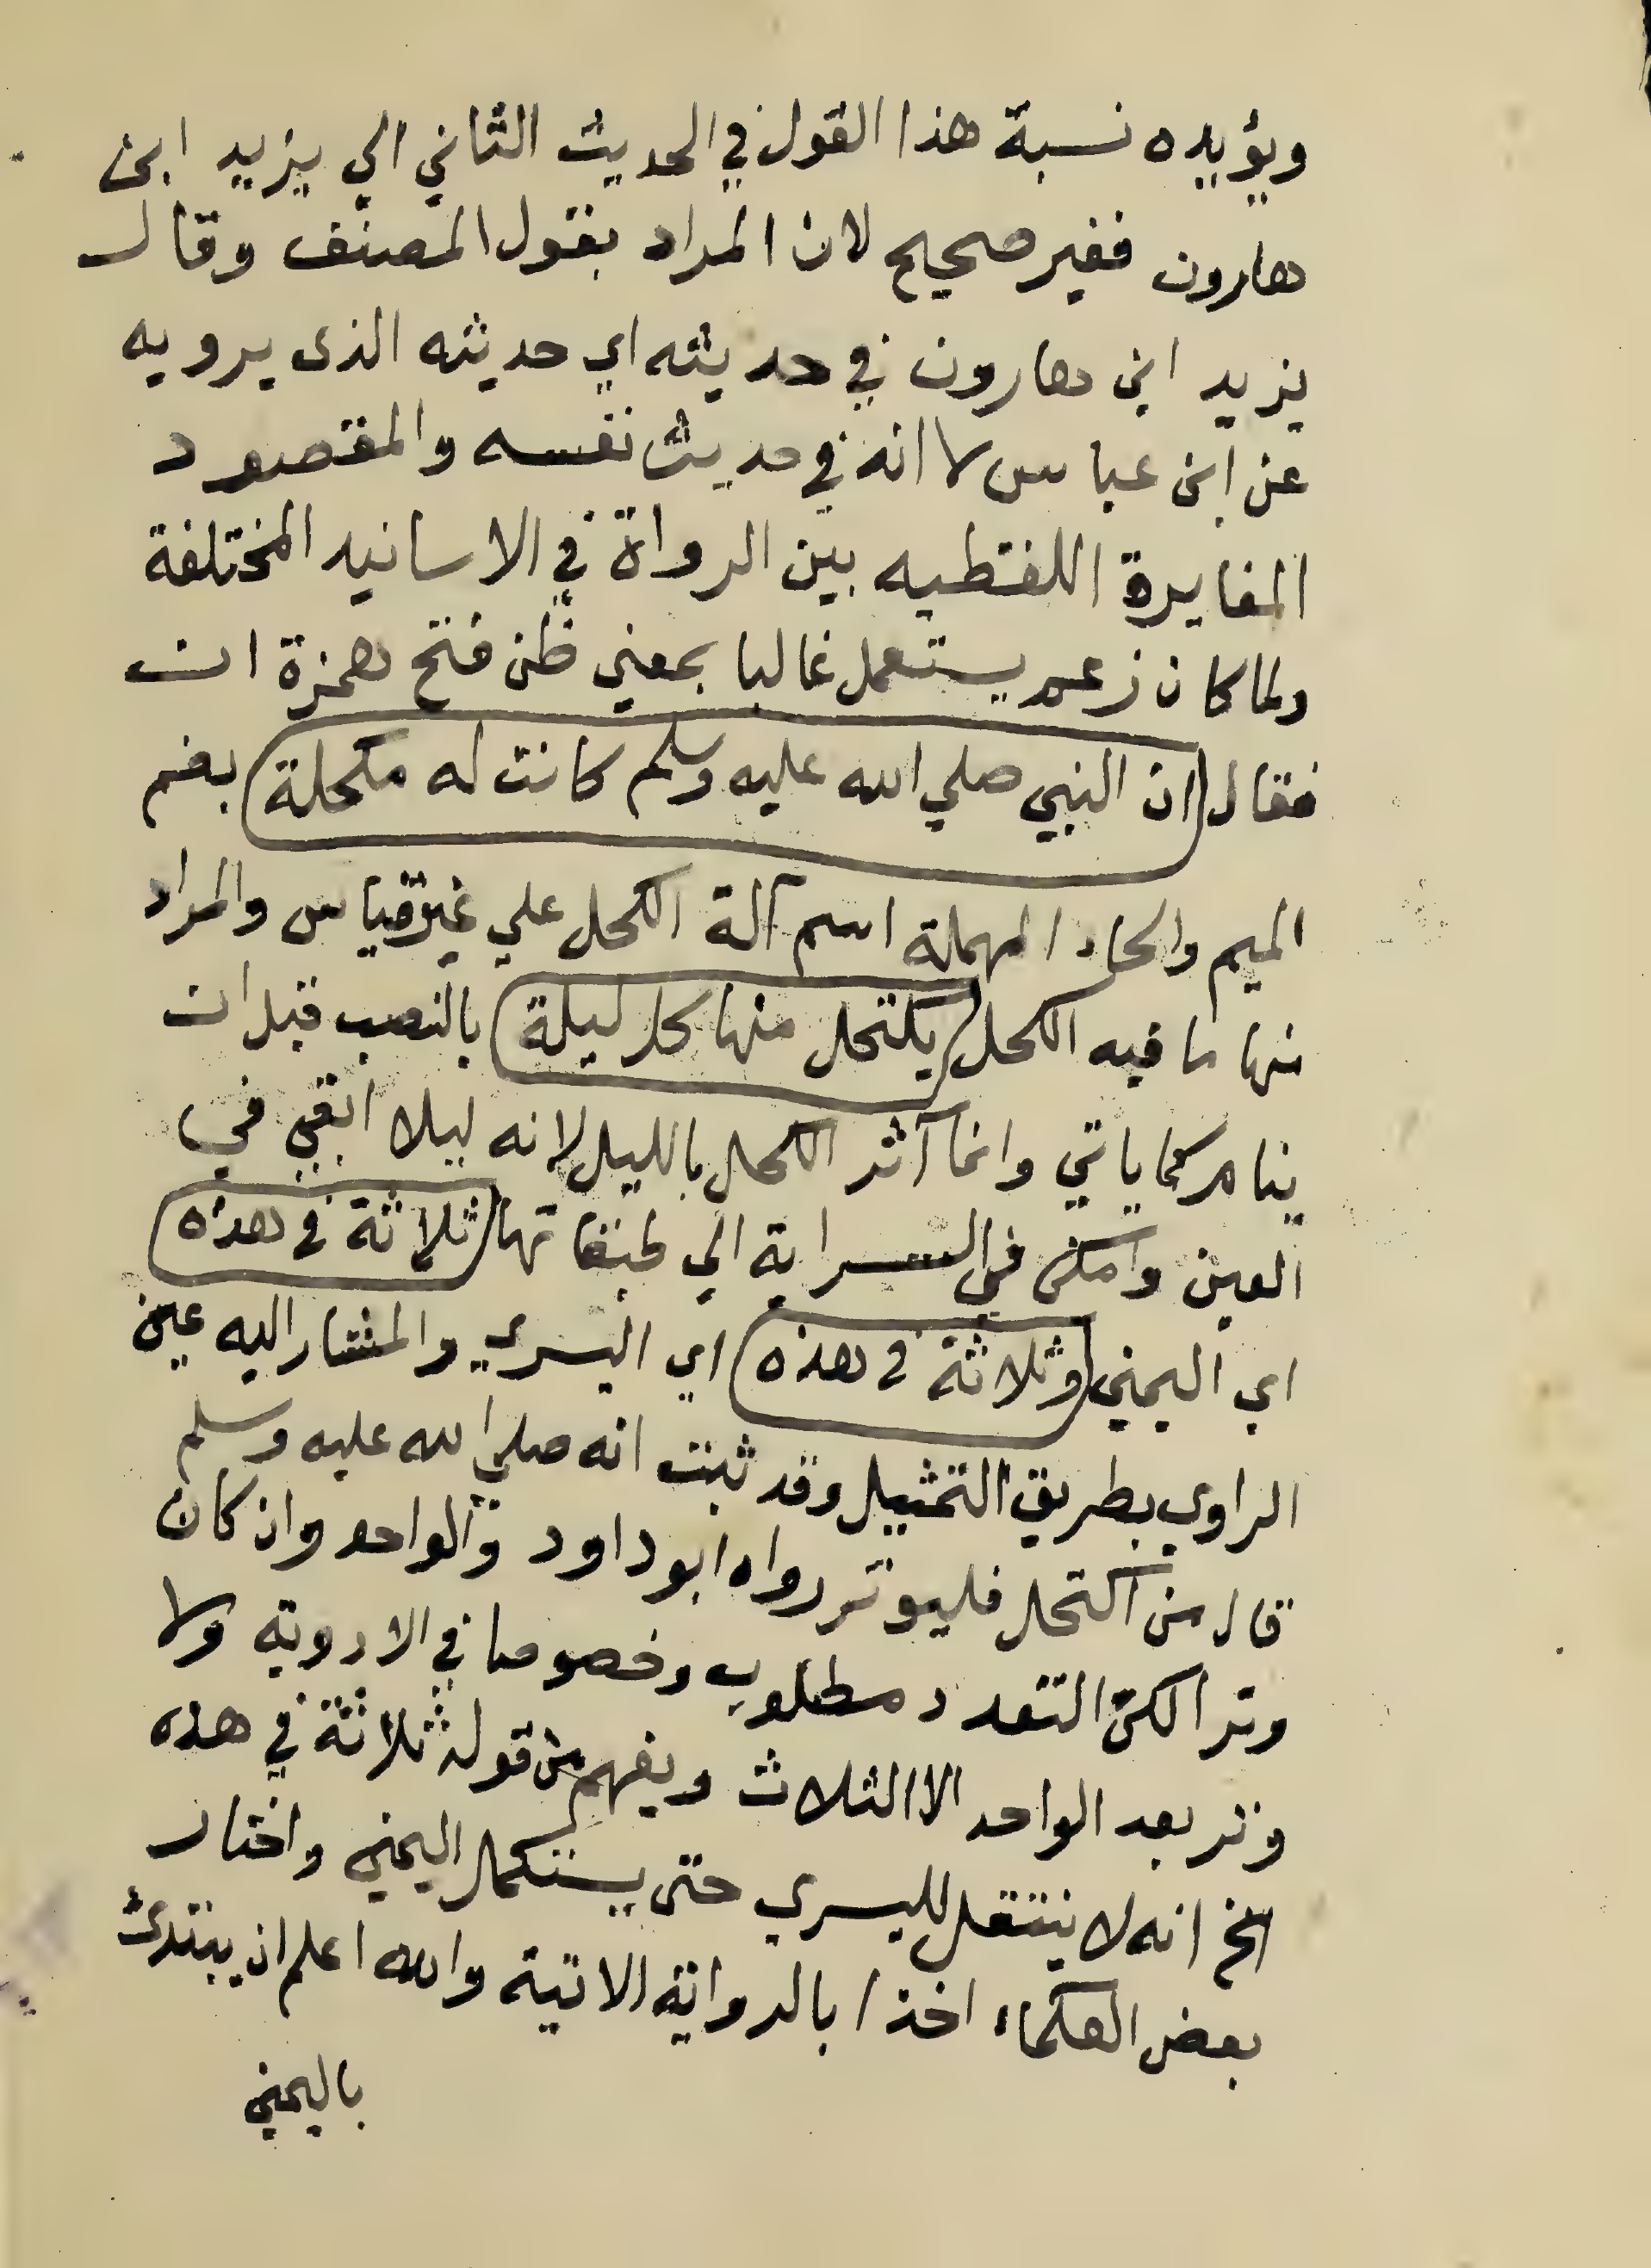 ويؤيده نسبة هذا القول في الحديث الثاني الي يزيد ابن
هارون فغير صحيح لان المراد بقول المصنف وقال
يزيد ابن هارون في حديثه اي حديثه الذى يرويه
عن ابن عباس لا انه في حديث نفسه والمقصود
المغايرة اللفظيه بين الرواة في الاسانيد المختلفة
ولما كان زعم يستعمل غالبا بمعني ظن فتح همزة ان
فقال (ان النبي صلي الله عليه وسلم كانت له مكحلة) بضم
الميم والحاء المهملة اسم آلة الكحل علي غير قياس والمراد
منها ما فيه الكحل (يكتحل منها كل ليلة) بالنصب قبل ان
ينام كما ياتي وانما آثر الكحل بالليل لانه ليلا ابقي في
العين وامكن في السراية الي طبقاتها (ثلاثة في هذه)
اي اليمني (وثلاثة في هذه) اي اليسري والمشار اليه عين
الراوي بطريق التمثيل وقد ثبت انه صلي الله عليه وسلم
قال من اكتحل فليوتر رواه ابو داود والواحد وان كان
وترا لكن التعدد مطلوب وخصوصا في الادوية ولا
وتر بعد الواحد الا الثلاث ويفهم من قوله ثلاثة في هذه
الخ انه لا ينتقل لليسري حتى يستكمل اليمني واختار
بعض الحكماء اخذا بالرواية الاتية والله اعلم ان يبتدئ
باليمني